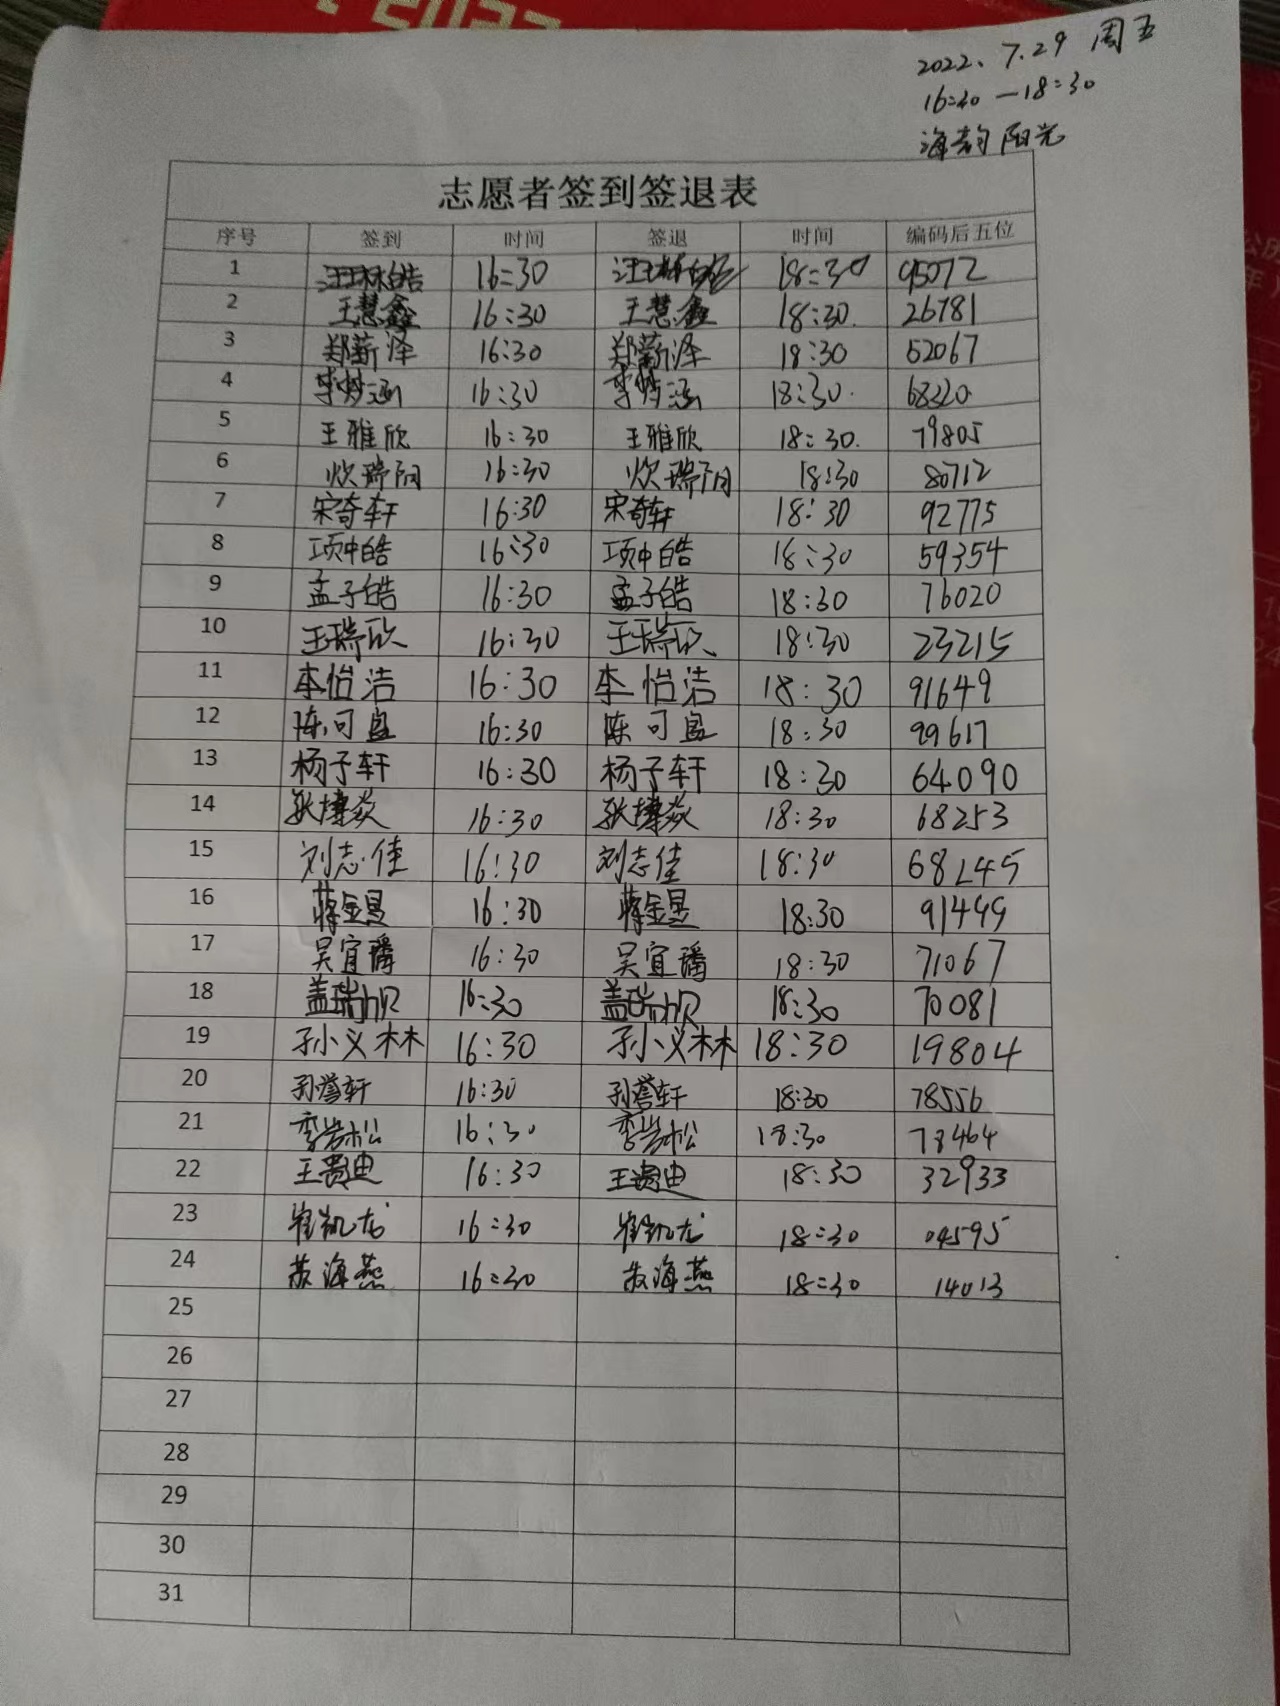 2022、7.29 周五
16:30—18:30
海韵阳光
志愿者签到签退表
序号 签到 时间 签退 时间 编码后五位
1 汪琳皓 16:30 汪琳皓 18:30 95072
2 王慧鑫 16:30 王慧鑫 18:30 26781
3 郑薪泽 16:30 郑薪泽 18:30 52067
4 16:30 18:30 68320
5 王雅欣 16:30 王雅欣 18:30 79805
6 炊瑞阳 16:30 炊瑞阳 18:30 80712
7 宋奇轩 16:30 宋奇轩 18:30 92775
8 项中皓 16:30 项中皓 18:30 59354
9 孟子皓 16:30 孟子皓 18:30 76020
10 王瑞欣 16:30 王瑞欣 18:30 23215
11 李怡洁 16:30 李怡洁 18:30 91649
12 陈可 16:30 陈可 18:30 99617
13 杨子轩 16:30 杨子轩 18:30 64090
14 16:30 18:30 68253
15 刘志佳 16:30 刘志佳 18:30
16 蒋金昱 16:30 蒋金昱 18:30 91499
17 吴宜璠 16:30 吴宜璠 18:30 71067
18 盖瑞 16:30 盖瑞 18:30 70081
19 孙义林 16:30 孙义林 18:30 19804
20 孙誉轩 16:30 孙誉轩 18:30 78556
21 李岩松 16:30 李岩松 18:30 78464
22 王贵迪 16:30 王贵迪 18:30 32933
23 崔凯龙 16:30 崔凯龙 18:30 04595
24 苏海燕 16:30 苏海燕 18:30 14013
25
26
27
28
29
30
31